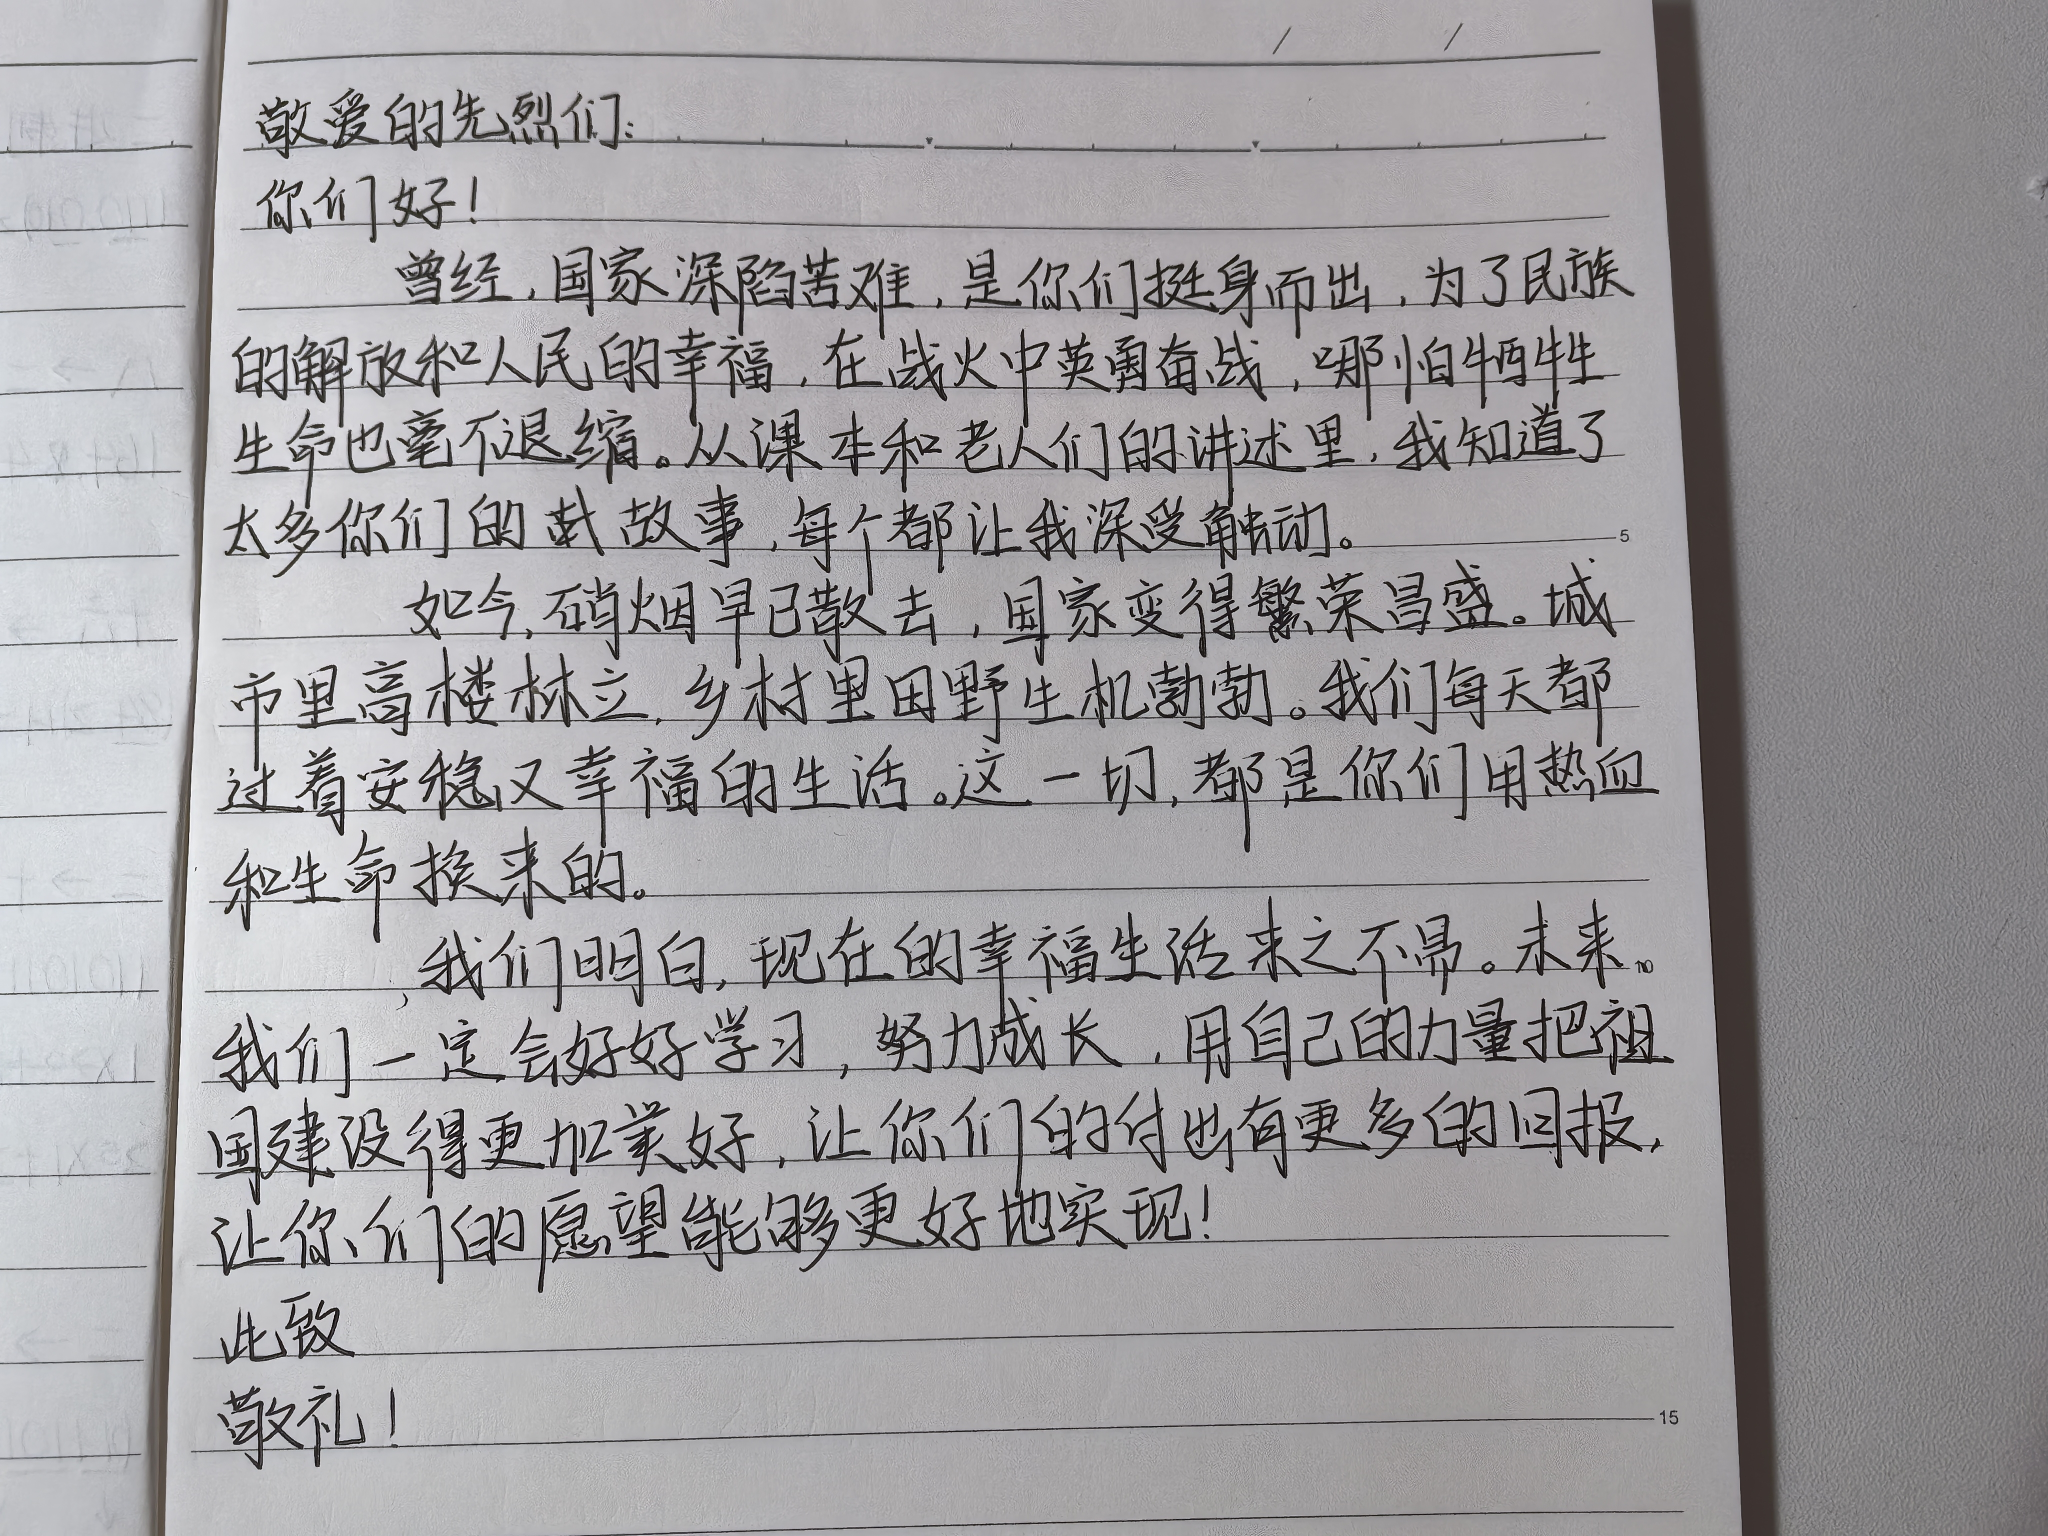 敬爱的先烈们:
你们好!
曾经,国家深陷苦难,是你们挺身而出,为了民族
的解放和人民的幸福,在战火中英勇奋战,哪怕牺牲
生命也毫不退缩。从课本和老人们的讲述里,我知道了
太多你们的故事,每个都让我深受触动。
5
如今,硝烟早已散去,国家变得繁荣昌盛。城
市里高楼林立,乡村里田野生机勃勃。我们每天都
过着安稳又幸福的生活。这一切,都是你们用热血
和生命换来的。
我们明白,现在的幸福生活来之不易。未来。
10
我们一定会好好学习,努力成长,用自己的力量把祖
国建设得更加美好,让你们的付出有更多的回报,
让你们的愿望能够更好地实现!
此致
敬礼!
15